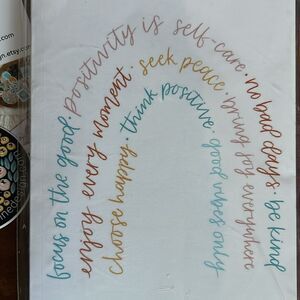 focus on the good. positivity is self-care. no bad days. be kind
enjoy every moment. seek peace. bring joy everywhere
choose happy. think positive. good vibes only